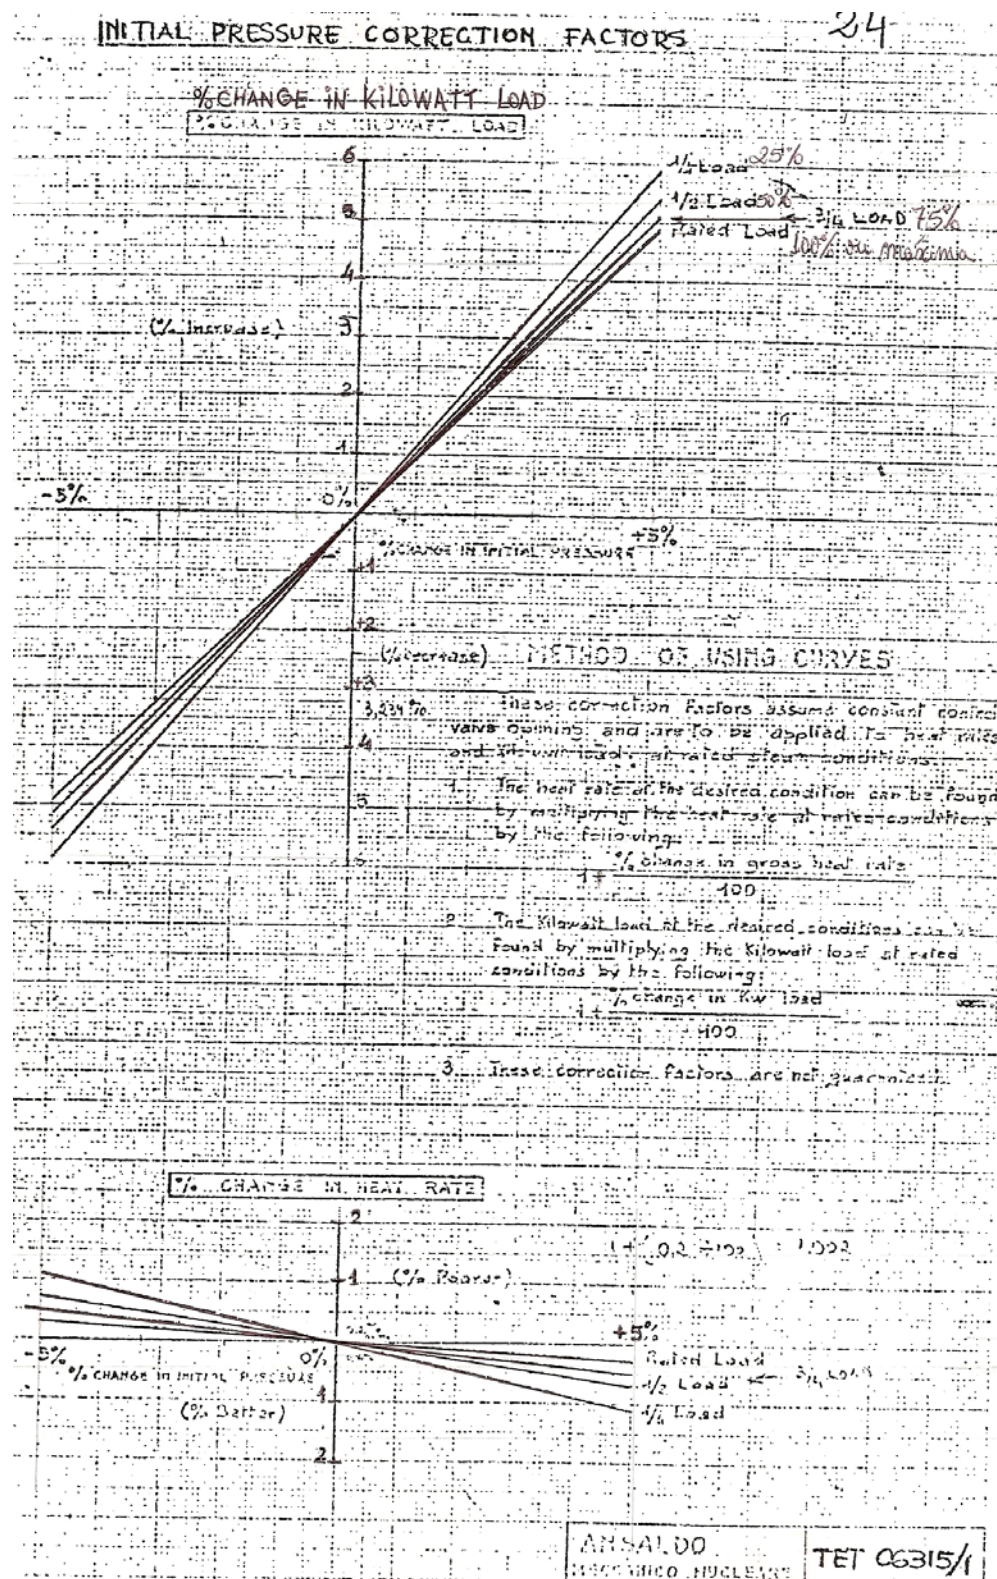 24
INITIAL PRESSURE CORRECTION FACTORS
% CHANGE IN KILOWATT LOAD
% CHANGE IN KILOWATT LOAD
6
1/4 Load 25%
1/2 Load 50%
5
3/4 LOAD 75%
Rated Load
100%
4
(% Increase)
3
2
1
-5%
0%
+5%
% CHANGE IN INITIAL PRESSURE
+1
+2
(% decrease)
METHOD OF USING CURVES
+3
3,239 %
These correction factors assume constant control
valve opening and are to be applied to heat rates
and kilowatt loads at rated steam conditions.
4
1. The heat rate at the desired condition can be found
by multiplying the heat rate at rated conditions
by the following:
5
% change in gross heat rate
1 +
100
2. The Kilowatt load at the desired conditions can be
found by multiplying the Kilowatt load at rated
conditions by the following:
% change in Kw load
1 +
100
3. These correction factors are not guaranteed.
% CHANGE IN HEAT RATE
2
1 + (0,2 ÷ 100) : 1.002
1
(% Poorer)
+5%
-5%
0%
Rated Load
% CHANGE IN INITIAL PRESSURE
1/2 Load
3/4 LOAD
1
(% Better)
1/4 Load
2
ANSALDO
MECCANICO NUCLEARE
TET 06315/1